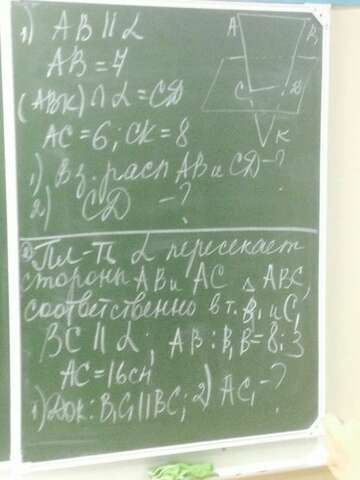 1) AB || α
A B
AB = 7
(ABK) ∩ α = CD
C D
AC = 6; CK = 8
K
1) Вз. расп AB и CD - ?
2) CD - ?
2) Пл-ть α пересекает
стороны AB и AC △ ABC,
соответственно в т. B₁ и C₁
BC || α; AB : B₁B = 8 : 3
AC = 16 см
1) Док: B₁C₁ || BC; 2) AC₁ - ?